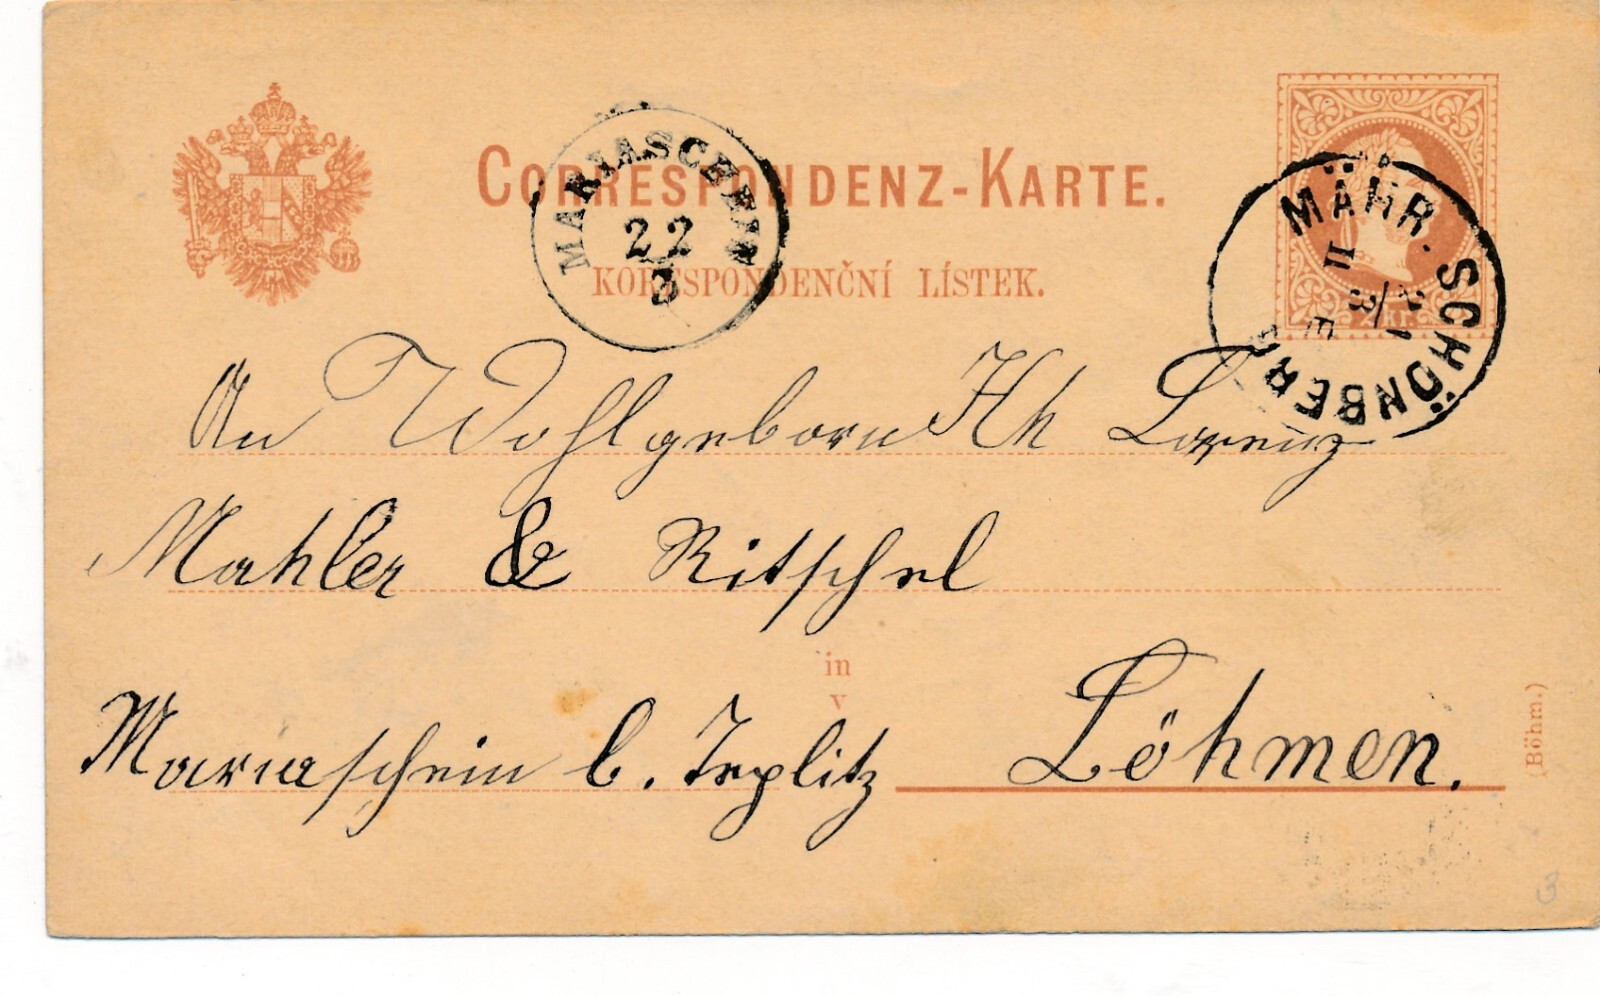 CORRESPONDENZ-KARTE.
KORRESPONDENČNÍ LÍSTEK.
MARIASCHEIN
22
3
MÄHR. SCHÖNBERG
21
3
II E
2 kr.
An Wohlgeborn Hh Lorenz
Mahler & Ritschel
in
v
Mariaschein b. Teplitz Löhmen.
(Böhm.)
3